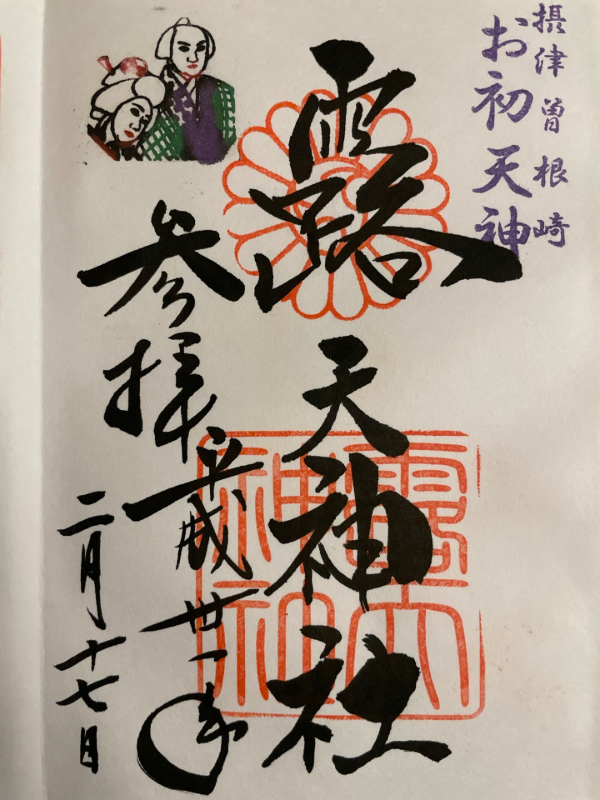 摂津曽根崎
お初天神
露天神社
露天神社
参拝
平成卅一年
二月十七日